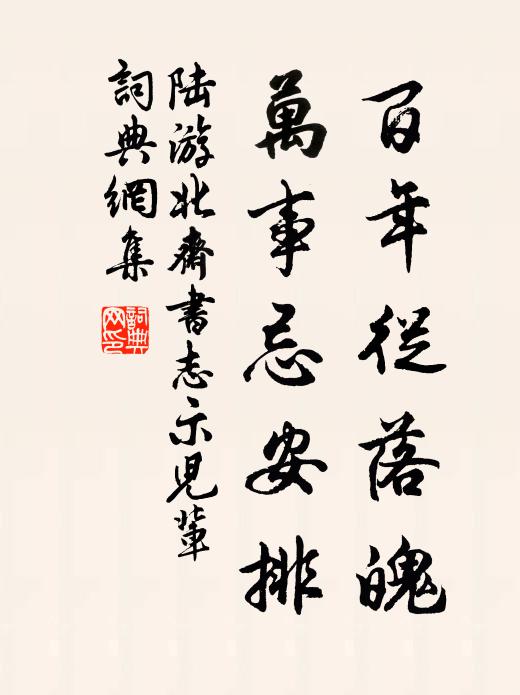 百年從落魄
萬事忌安排
陆游北齋書志示兒輩
詞典網集
詞典网印